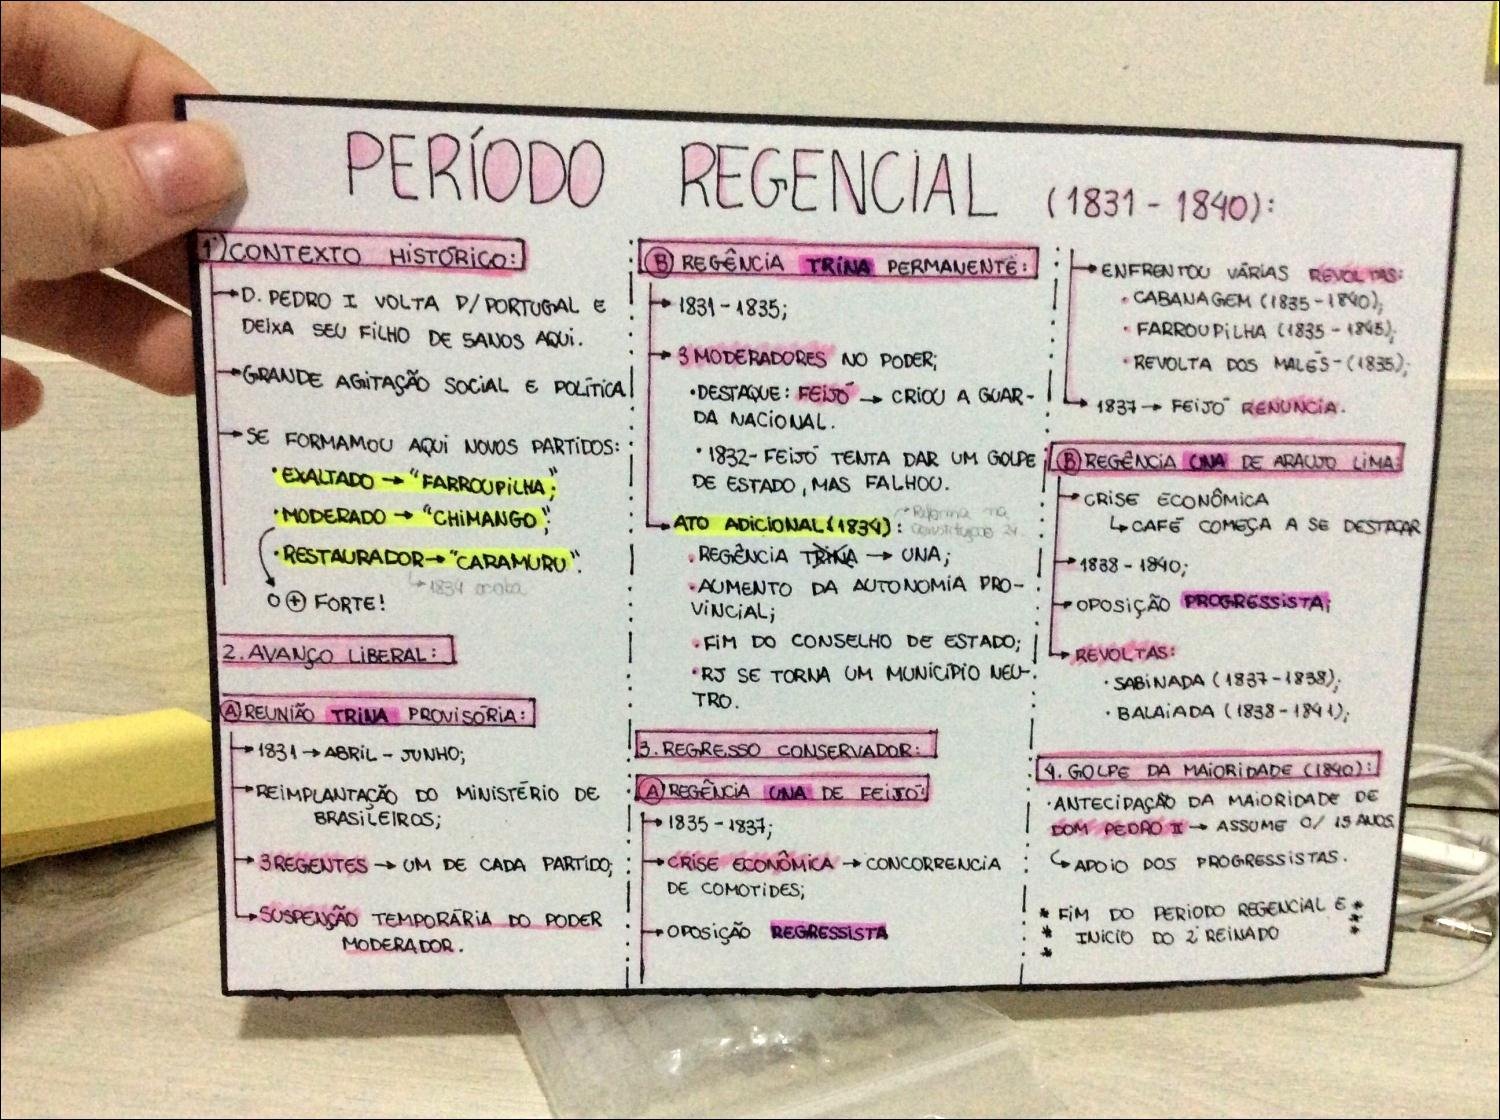 PERÍODO REGENCIAL (1831 - 1840):
1°) CONTEXTO HISTÓRICO:
→ D. PEDRO I VOLTA P/ PORTUGAL E
DEIXA SEU FILHO DE 5ANOS AQUI.
→ GRANDE AGITAÇÃO SOCIAL E POLÍTICA
→ SE FORMAMOU AQUI NOVOS PARTIDOS:
• EXALTADO → "FARROUPILHA;"
• MODERADO → "CHIMANGO;"
• RESTAURADOR → "CARAMURU".
↳ 1834 acaba
O ⊕ FORTE!
2. AVANÇO LIBERAL:
Ⓐ REUNIÃO TRINA PROVISÓRIA:
→ 1831 → ABRIL - JUNHO;
→ REIMPLANTAÇÃO DO MINISTÉRIO DE
BRASILEIROS;
→ 3 REGENTES → UM DE CADA PARTIDO;
→ SUSPENÇÃO TEMPORÁRIA DO PODER
MODERADOR.
Ⓑ REGÊNCIA TRINA PERMANENTE:
→ 1831 - 1835;
→ 3 MODERADORES NO PODER;
• DESTAQUE: FEIJÓ → CRIOU A GUAR-
DA NACIONAL.
• 1832 - FEIJÓ TENTA DAR UM GOLPE
DE ESTADO, MAS FALHOU.
→ ATO ADICIONAL (1834): • Reforma na
constituição 24.
• REGÊNCIA TRINA → UNA;
• AUMENTO DA AUTONOMIA PRO-
VINCIAL;
• FIM DO CONSELHO DE ESTADO;
• RJ SE TORNA UM MUNICÍPIO NEU-
TRO.
3. REGRESSO CONSERVADOR:
Ⓐ REGÊNCIA UNA DE FEIJÓ:
→ 1835 - 1837;
→ CRISE ECONÔMICA → CONCORRENCIA
DE COMOTIDES;
→ OPOSIÇÃO REGRESSISTA
→ ENFRENTOU VÁRIAS REVOLTAS:
• CABANAGEM (1835 - 1840);
• FARROUPILHA (1835 - 1845);
• REVOLTA DOS MALÊS - (1835);
→ 1837 → FEIJÓ RENUNCIA.
Ⓑ REGÊNCIA UNA DE ARAUJO LIMA:
→ CRISE ECONÔMICA
↳ CAFÉ COMEÇA A SE DESTAÇAR
→ 1838 - 1840;
→ OPOSIÇÃO PROGRESSISTA;
→ REVOLTAS:
• SABINADA (1837 - 1838);
• BALAIADA (1838 - 1841);
4. GOLPE DA MAIORIDADE (1840):
• ANTECIPAÇÃO DA MAIORIDADE DE
DOM PEDRO II → ASSUME C/ 15 ANOS.
↳ APOIO DOS PROGRESSISTAS.
* FIM DO PERIODO REGENCIAL E *
* INICIO DO 2° REINADO *